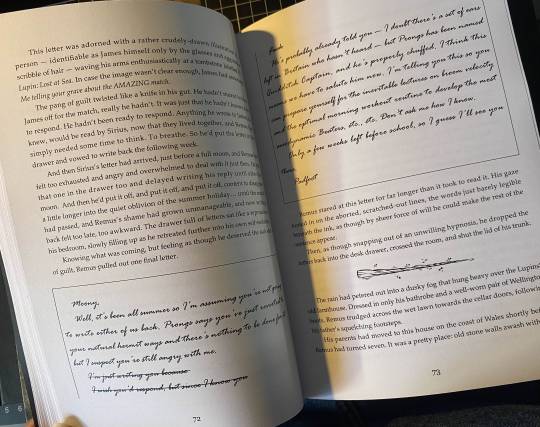 This letter was adorned with a rather crudely-drawn illustration
person — identifiable as James himself only by the glasses and
scribble of hair — waving his arms enthusiastically at a tombstone
Lupin: Lost at Sea. In case the image wasn't clear enough, James had
Me telling your grave about the AMAZING match.
The pang of guilt twisted like a knife in his gut. He hadn't
James off for the match, really he hadn't. It was just that he hadn't
to respond. He hadn't been ready to respond. Anything he wrote to
knew, would be read by Sirius, now that they lived together, and
simply needed some time to think. To breathe. So he'd put the letter
drawer and vowed to write back the following week.
And then Sirius's letter had arrived, just before a full moon, and
felt too exhausted and angry and overwhelmed to deal with it just then.
that one in the drawer too and delayed writing his reply until
moon. And then he'd put it off, and put it off, and put it off, content to
a little longer into the quiet oblivion of the summer holiday—
had passed, and Remus's shame had grown unmanageable, and now
back felt too late, too awkward. The drawer full of letters sat like a
his bedroom, slowly filling up as he retreated further into his own
Knowing what was coming, but feeling as though he deserved the
of guilt, Remus pulled out one final letter.
Moony,
Well, it's been all summer so I'm assuming you're not
to write either of us back. Prongs says you've just
your natural hermit ways and there's nothing to be done for it
but I suspect you're still angry with me.
I'm just writing you because
I wish you'd respond, but since I know you
72
He's probably already told you — I doubt there's a set of ears
left in Britain who hasn't heard — but Prongs has been named
Quidditch Captain, and he's properly chuffed. I think this
means we have to salute him now. I'm telling you this so you
can prepare yourself for the inevitable lectures on broom velocity
and the optimal morning workout routine to develop the most
aerodynamic Beaters, etc., etc. Don't ask me how I know.
Only a few weeks left before school, so I guess I'll see you
then.
Padfoot
Remus stared at this letter for far longer than it took to read it. His gaze
in on the aborted, scratched-out lines, the words just barely legible
beneath the ink, as though by sheer force of will he could make the rest of the
sentence appear.
Then, as though snapping out of an unwilling hypnosis, he dropped the
letters back into the desk drawer, crossed the room, and shut the lid of his trunk.
The rain had petered out into a dusky fog that hung heavy over the Lupins'
old farmhouse. Dressed in only his bathrobe and a well-worn pair of Wellington
boots, Remus trudged across the wet lawn towards the cellar doors, following
his father's squelching footsteps.
His parents had moved to this house on the coast of Wales shortly before
Remus had turned seven. It was a pretty place: old stone walls awash with
73